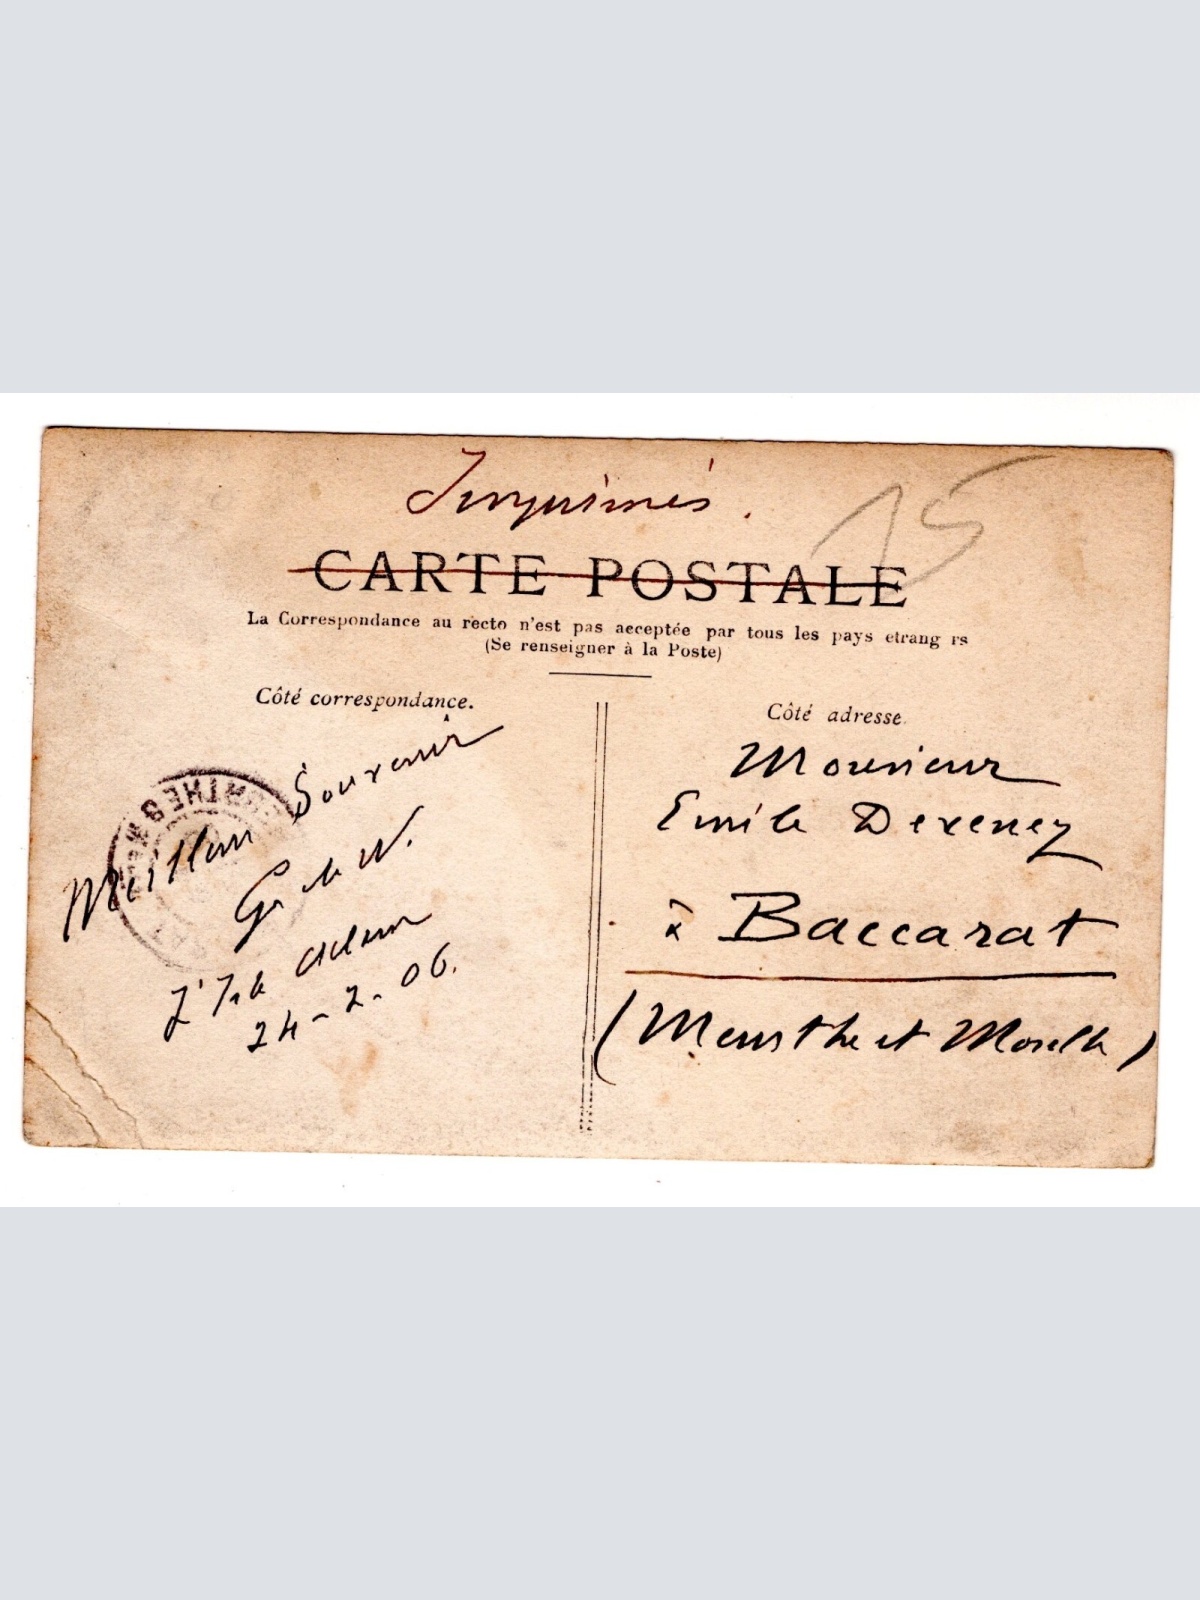 Imprimés.
15
CARTE POSTALE
La Correspondance au recto n'est pas acceptée par tous les pays etrang rs
(Se renseigner à la Poste)
Côté correspondance.
Meilleur Souvenir
G de W.
L'Isle Adam
24-2-06.
Côté adresse
Monsieur
Emile Dexeney
à Baccarat
(Meurthe et Moselle)